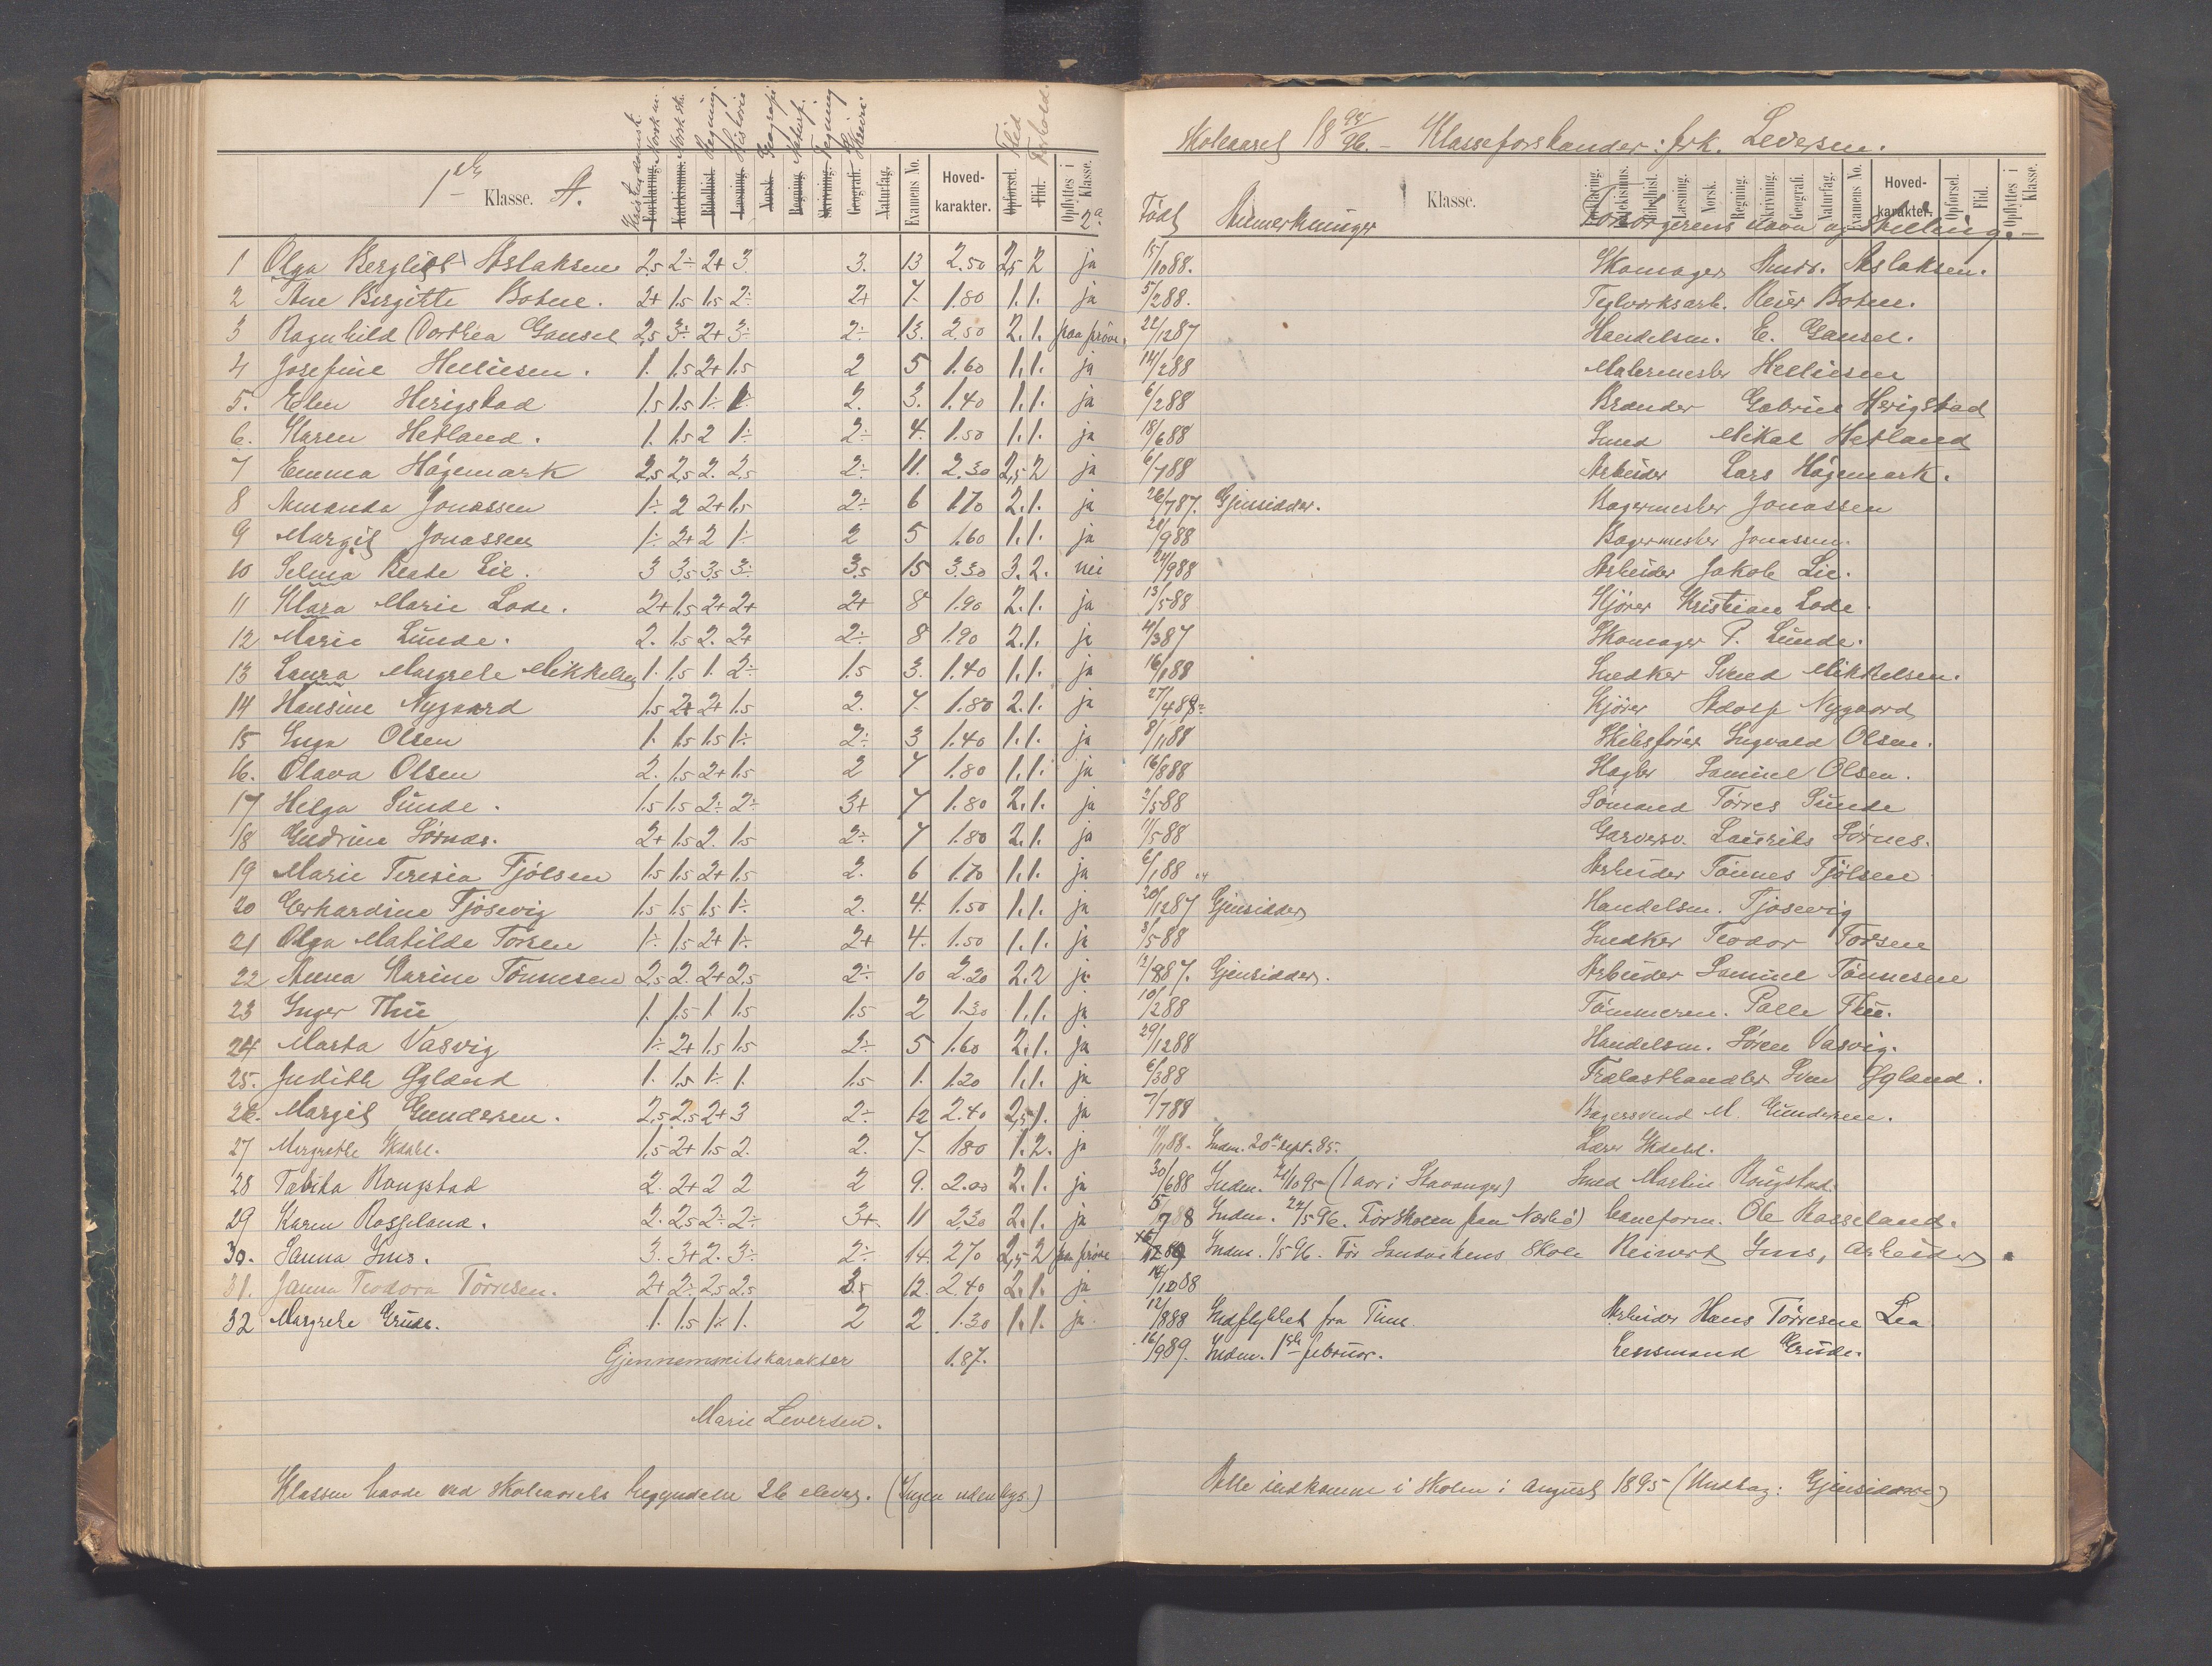 1ste Klasse. A.
Kristendomsk. Norsk m. Norsk sk. Regning. Historie Geografi Naturf. Tegning Skrivn. Flid Forhold.
Forklaring. Katekismus. Bibelhist. Læsning. Norsk. Regning. Skrivning. Geografi. Naturfag. Examens No. Hoved-karakter. Opførsel. Flid. Opflyttes i Klasse. 2a
1 Olga Bergliot Aslaksen 2.5 2÷ 2+ 3. 3. 13 2.50 2,5 2 ja
2 Ane Birgitte Botne. 2+ 1.5 1.5 2÷ 2+ 7. 1.80 1. 1. ja
3 Ragnhild Dorthea Gausel 2,5 3÷ 2+ 3÷ 2÷ 13. 2.50 2. 1. paa prøve.
4 Josefine Helliesen. 1. 1.5 2+ 1.5 2 5 1.60 1. 1. ja
5. Elen Herigstad 1.5 1.5 1÷ 1÷ 2. 3. 1.40 1. 1. ja
6. Karen Hetland. 1. 1.5 2 1÷ 2÷ 4. 1.50 1. 1. ja
7 Emma Högemark 2,5 2,5 2. 2,5 2÷ 11. 2.30 2,5 2 ja
8 Amanda Jonassen 1÷ 2 2+ 1.5 2÷ 6 1.70 2. 1. ja
9 Margit Jonassen 1÷ 2+ 2 1÷ 2 5 1.60 1. 1. ja
10 Selma Beate Lie. 3 3,5 3,5 3÷ 3,5 15 3.30 3. 2. nei
11 Klara Marie Lode. 2+ 1.5 2+ 2+ 2+ 8 1.90 2. 1. ja
12 Marie Lunde. 2. 1.5 2. 2+ 2÷ 8 1.90 2. 1. ja
13 Laura Margrete Mikkelsen 1. 1.5 1. 2÷ 1.5 3. 1.40 1. 1. ja
14 Hansine Nygaard 1.5 2+ 2+ 1.5 2. 7. 1.80 2. 1. ja
15 Inga Olsen 1. 1.5 1.5 1÷ 2÷ 3 1.40 1. 1. ja
16. Olava Olsen 2. 1.5 2+ 1.5 2 7 1.80 1. 1. ja
17 Helga Sunde. 1.5 1.5 2÷ 2÷ 3+ 7 1.80 2. 1. ja
18 Gudrine Sörnes. 2+ 1.5 2. 1.5 2÷ 7 1.80 2. 1. ja
19 Marie Teresia Tjölsen 1.5 1.5 2+ 1.5 2. 6 1.70 1. 1. ja
20 Gerhardine Tjosevig 1.5 1.5 1.5 1÷ 2. 4. 1.50 1. 1. ja
21 Olga Matilde Torsen 1÷ 1.5 2+ 1÷ 2+ 4. 1.50 1. 1. ja
22 Anna Karine Tönnesen 2,5 2. 2+ 2,5 2÷ 10 2.20 2. 2 ja
23 Inger Thu 1. 1.5 1 1.5 1.5 2 1.30 1. 1. ja
24 Marta Vasvig 1÷ 2+ 1.5 1.5 2÷ 5 1.60 2. 1. ja
25. Judith Ögland 1. 1.5 1÷ 1. 1.5 1. 1.20 1. 1. ja
26. Margit Gundersen. 2,5 2.5 2+ 3 2÷ 12 2.40 2,5 1. ja
27 Mergrethe Skdahl. 1.5 2+ 1.5 2. 2. 7. 1.80 1. 2. ja
28 Tabita Rongstad 2. 2+ 2 2 2 9. 2.00 2. 1. ja
29 Karen Rosseland. 2. 2,5 2÷ 2÷ 3+ 11 2.30 2. 1. ja
30. Sanna Ims. 3. 3+ 2. 3÷ 2÷ 14. 2.70 2,5 2 paa prøve
31. Janna Teodora Törresen. 2+ 2÷ 2,5 2,5 3,5 12. 2.40 2. 1. ja
32 Margrete Grude. 1. 1.5 1÷ 1. 2 2 1.30 1. 1. ja.
Gjennemsnitskarakter 1.87.
Marie Leversen.
Klassen havde ved skoleaarets begyndelse 26 elever. (Ingen udenbys)
Skoleaaret 18 95/96. – Klasseforstander: frk. Leversen.
Klasse.
Forklaring. Katekismus. Bibelhist. Læsning. Norsk. Regning. Skrivning. Geografi. Naturfag. Examens No. Hoved-karakter. Opførsel. Flid. Opflyttes i Klasse.
Født Anmerkninger Forsørgerens navn og stilling.
15/10 88. Skomager Andr. Aslaksen.
5/2 88. Teglverksarb. Reier Botne.
22/12 87 Handelsm. E. Gausel.
14/2 88 Malermester Helliesen
6/2 88 Brænder Gabriel Herigstad
18/6 88 Smed Mikal Hetland
6/7 88 Arbeider Lars Högemark.
26/7 87. Gjensidder. Bagermester Jonassen
28/9 88 Bagermester Jonassen.
24/9 88 Arbeider Jakob Lie.
13/5 88 Kjører Kristian Lode.
4/3 87 Skomager P. Lunde.
16/1 88 Snedker Svend Mikkelsen.
27/4 88 Kjører Adolf Nygaard
8/1 88 Skibsfører Ingvald Olsen.
16/8 88 Slagter Samuel Olsen.
2/5 88 Sømand Törres Sunde
11/5 88 Garversv. Laurits Sörnes.
6/1 88 Arbeider Tönnes Tjölsen
20/12 87 Gjensidder Handelsm. Tjosevig
8/5 88 Snedker Teodor Torsen
12/8 87. Gjensidder. Arbeider Samuel Tönnesen
10/2 88 Tømmerm. Palle Thu.
29/12 88 Handelsm. Sören Vasvig.
6/3 88 Trælasthandler Sven Ögland.
7/7 88 Bagersvend M. Gundersen.
11/1 88. Indm. 20de sept. 95. Lærer Skdahl.
30/6 88 Indm. 21/10 95 (1 aar i Stavanger) Smed Martin Rongstad.
5/7 88 Indm. 22/5 96. Før Skolen paa Nærbø) baneform. Ole Rosseland.
12 89 Indm. 1/5 96. Før Sandvikens Skole Reinert Ims, Arbeider.
14/12 88
12/8 88 Indflyttet fra Time Arbeider Hans Törresen Lea
16/9 89. Indm. 1ste februar. Lensmand Grude.
Alle indkomne i skolen i august 1895 (Undtag: Gjensiddere)